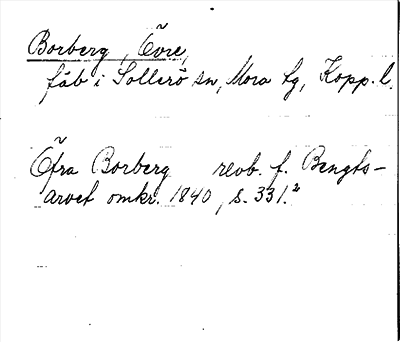 Borberg, Övre,
fäb i Sollerö sn, Mora tg, Kopp. l.
Öfra Borberg reob. f. Bengts-
arvet omkr. 1840, s. 331.²